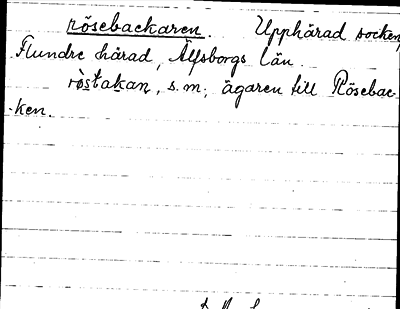 rösebackaren. Upphärad socken,
Flundre härad, Älfsborgs län.
röstakan, s.m., ägaren till Rösebac-
ken.